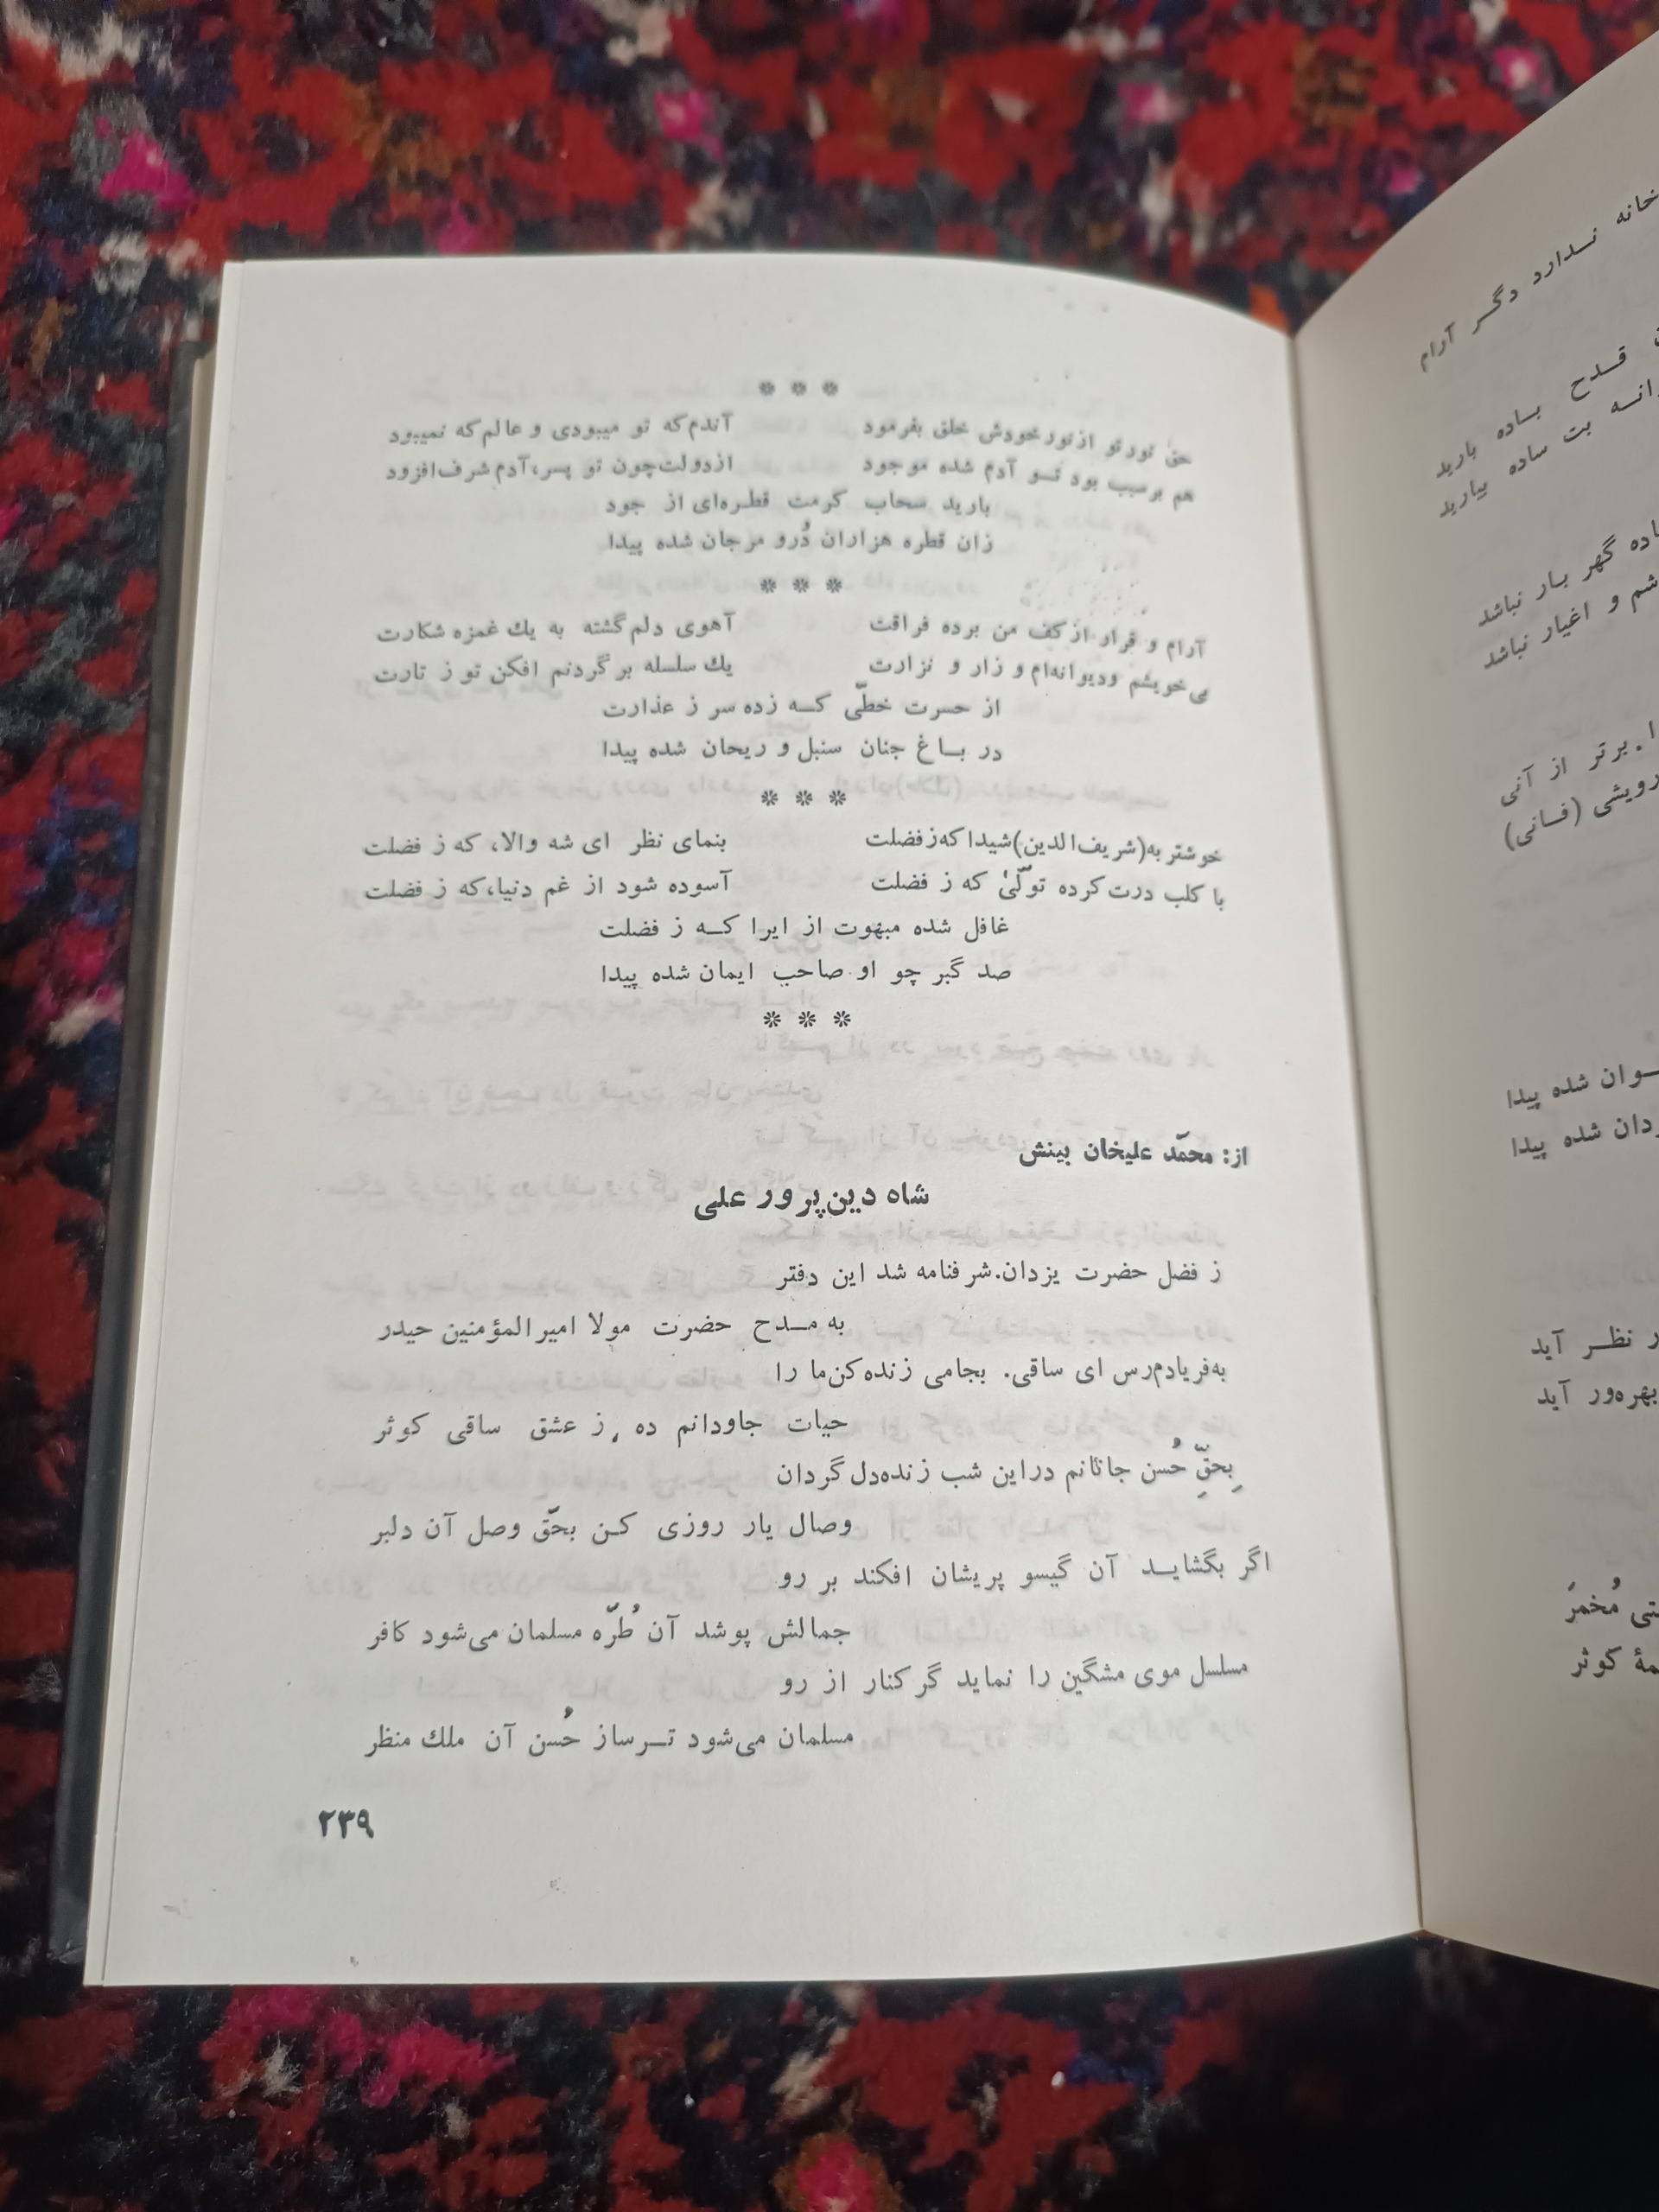 * * *
حق نور تو از نور خودش خلق بفرمود آندم که تو میبودی و عالم که نمیبود
هم بر سبب بود تو آدم شده موجود از دولت چون تو پسر، آدم شرف افزود
بارید سحاب کرمت قطره‌ای از جود
زان قطره هزاران دُر و مرجان شده پیدا
* * *
آرام و قرار از کف من برده فراقت آهوی دلم گشته به یك غمزه شکارت
بی‌خویشم و دیوانه‌ام و زار و نزارت یك سلسله بر گردنم افکن تو ز تارت
از حسرت خطّی که زده سر ز عذارت
در باغ جنان سنبل و ریحان شده پیدا
* * *
خوشتر به (شریف‌الدین) شیدا که ز فضلت بنمای نظر ای شه والا، که ز فضلت
با کلب درت کرده تولّیٰ که ز فضلت آسوده شود از غم دنیا، که ز فضلت
غافل شده مبهوت از ایرا که ز فضلت
صد گبر چو او صاحب ایمان شده پیدا
* * *
از: محمّد علیخان بینش
شاه دین‌پرور علی
ز فضل حضرت یزدان. شرفنامه شد این دفتر
به مدح حضرت مولا امیرالمؤمنین حیدر
به‌فریادم‌رس ای ساقی. بجامی زنده‌کن‌ما را
حیات جاودانم ده ، ز عشق ساقی کوثر
بِحقِّ حُسن جانانم دراین شب زنده‌دل گردان
وصال یار روزی کن بحقّ وصل آن دلبر
اگر بگشاید آن گیسو پریشان افکند بر رو
جمالش پوشد آن طُرّه مسلمان می‌شود کافر
مسلسل موی مشگین را نماید گر کنار از رو
مسلمان می‌شود ترساز حُسن آن ملك منظر
۲۳۹
خانه ندارد دگر آرام
قدح باده بارید
بت ساده بیارید
گهر بار نباشد
و اغیار نباشد
برتر از آنی
(فانی)
شده پیدا
شده پیدا
نظر آید
بهره‌ور آید
مُخمرَ
کوثر